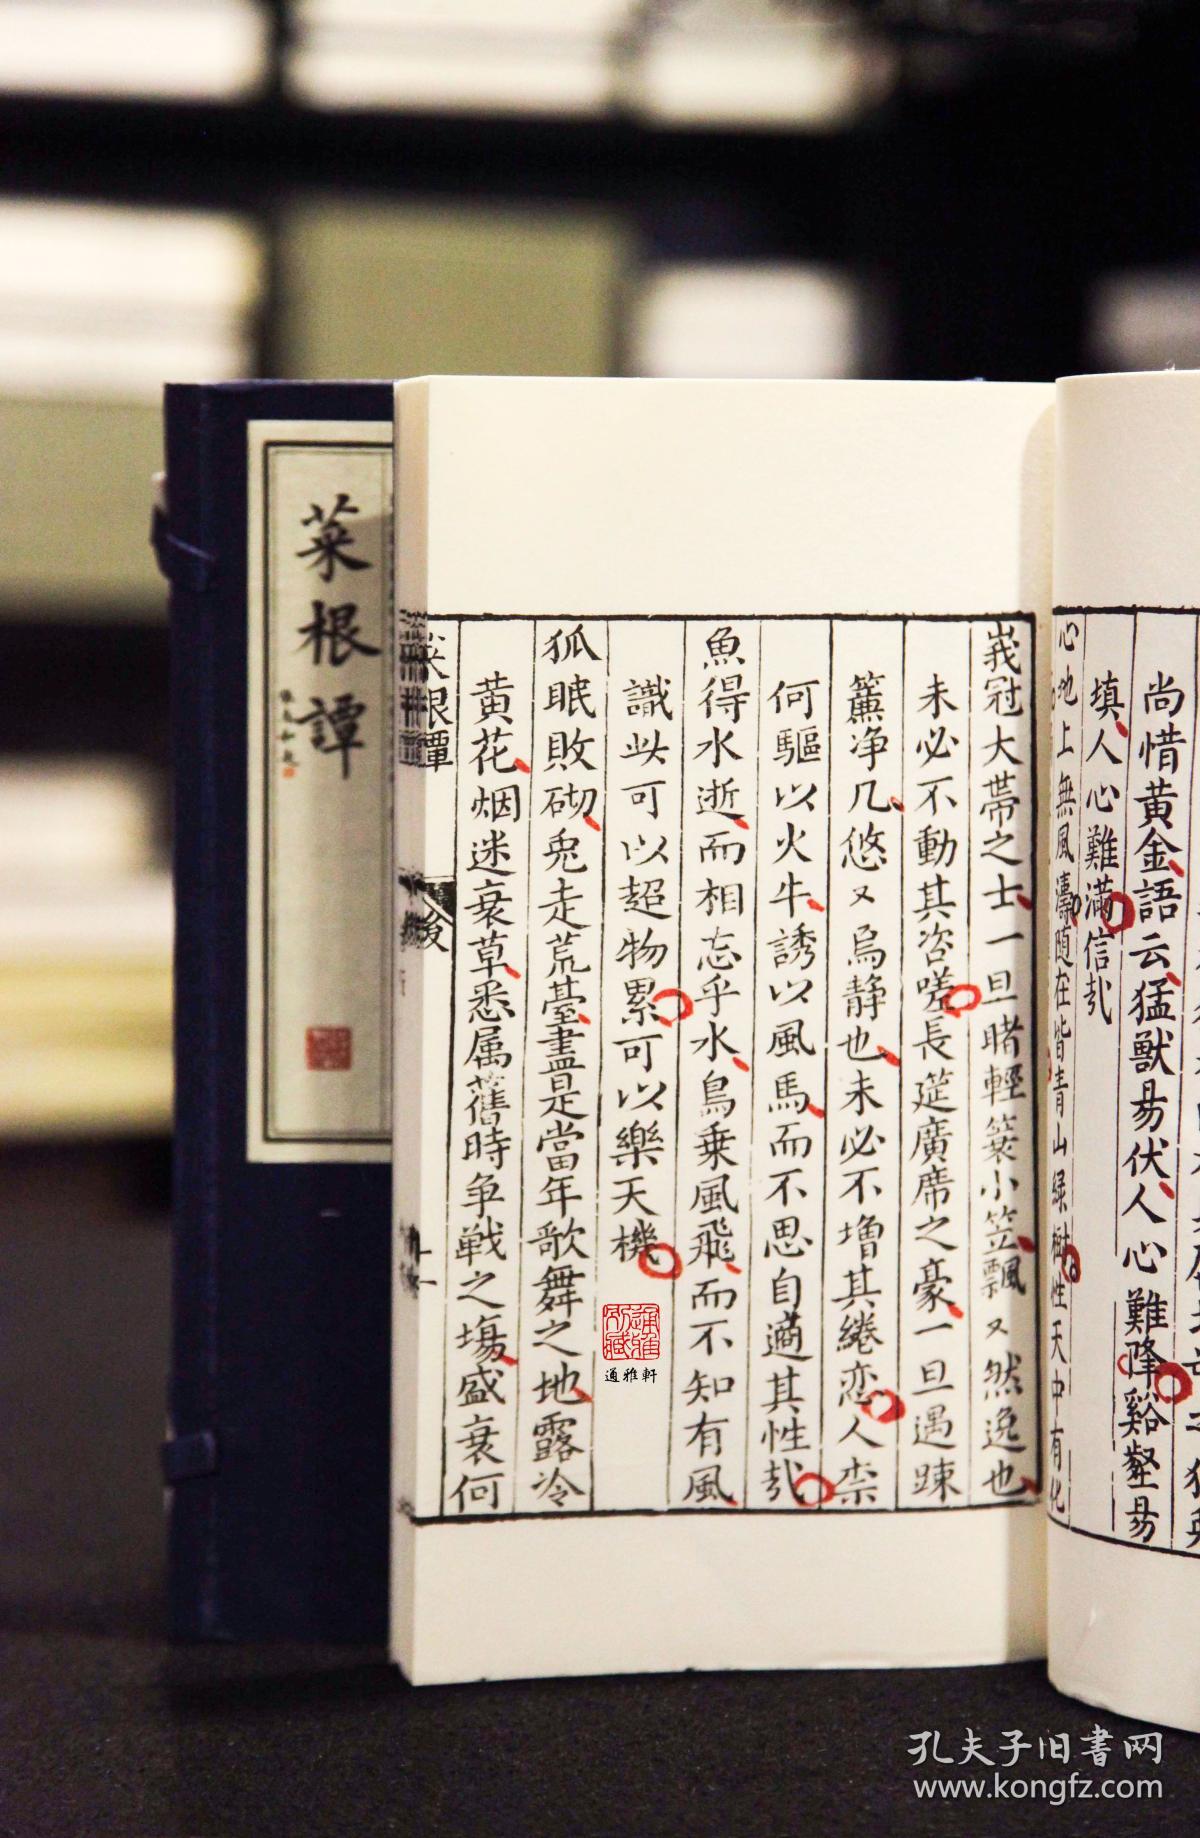 尚惜黄金語云猛獸易伏人心難降谿壑易
填人心難滿信㢤
心地上無風濤随在皆青山緑樹性天中有化
峩冠大帯之士一旦睹輕簑小笠飄又然逸也
未必不動其咨嗟長筵廣席之豪一旦遇踈
簾浄几悠又焉静也未必不増其綣恋人柰
何驅以火牛誘以風馬而不思自適其性㢤
魚得水逝而相忘乎水鳥乗風飛而不知有風
識此可以超物累可以樂天機
狐眠敗砌兎走荒䑓盡是當年歌舞之地露冷
黄花烟迷衰草悉属舊時争戦之塲盛衰何
菜根譚
後
菜根譚
通雅軒
孔夫子旧書网
www.kongfz.com